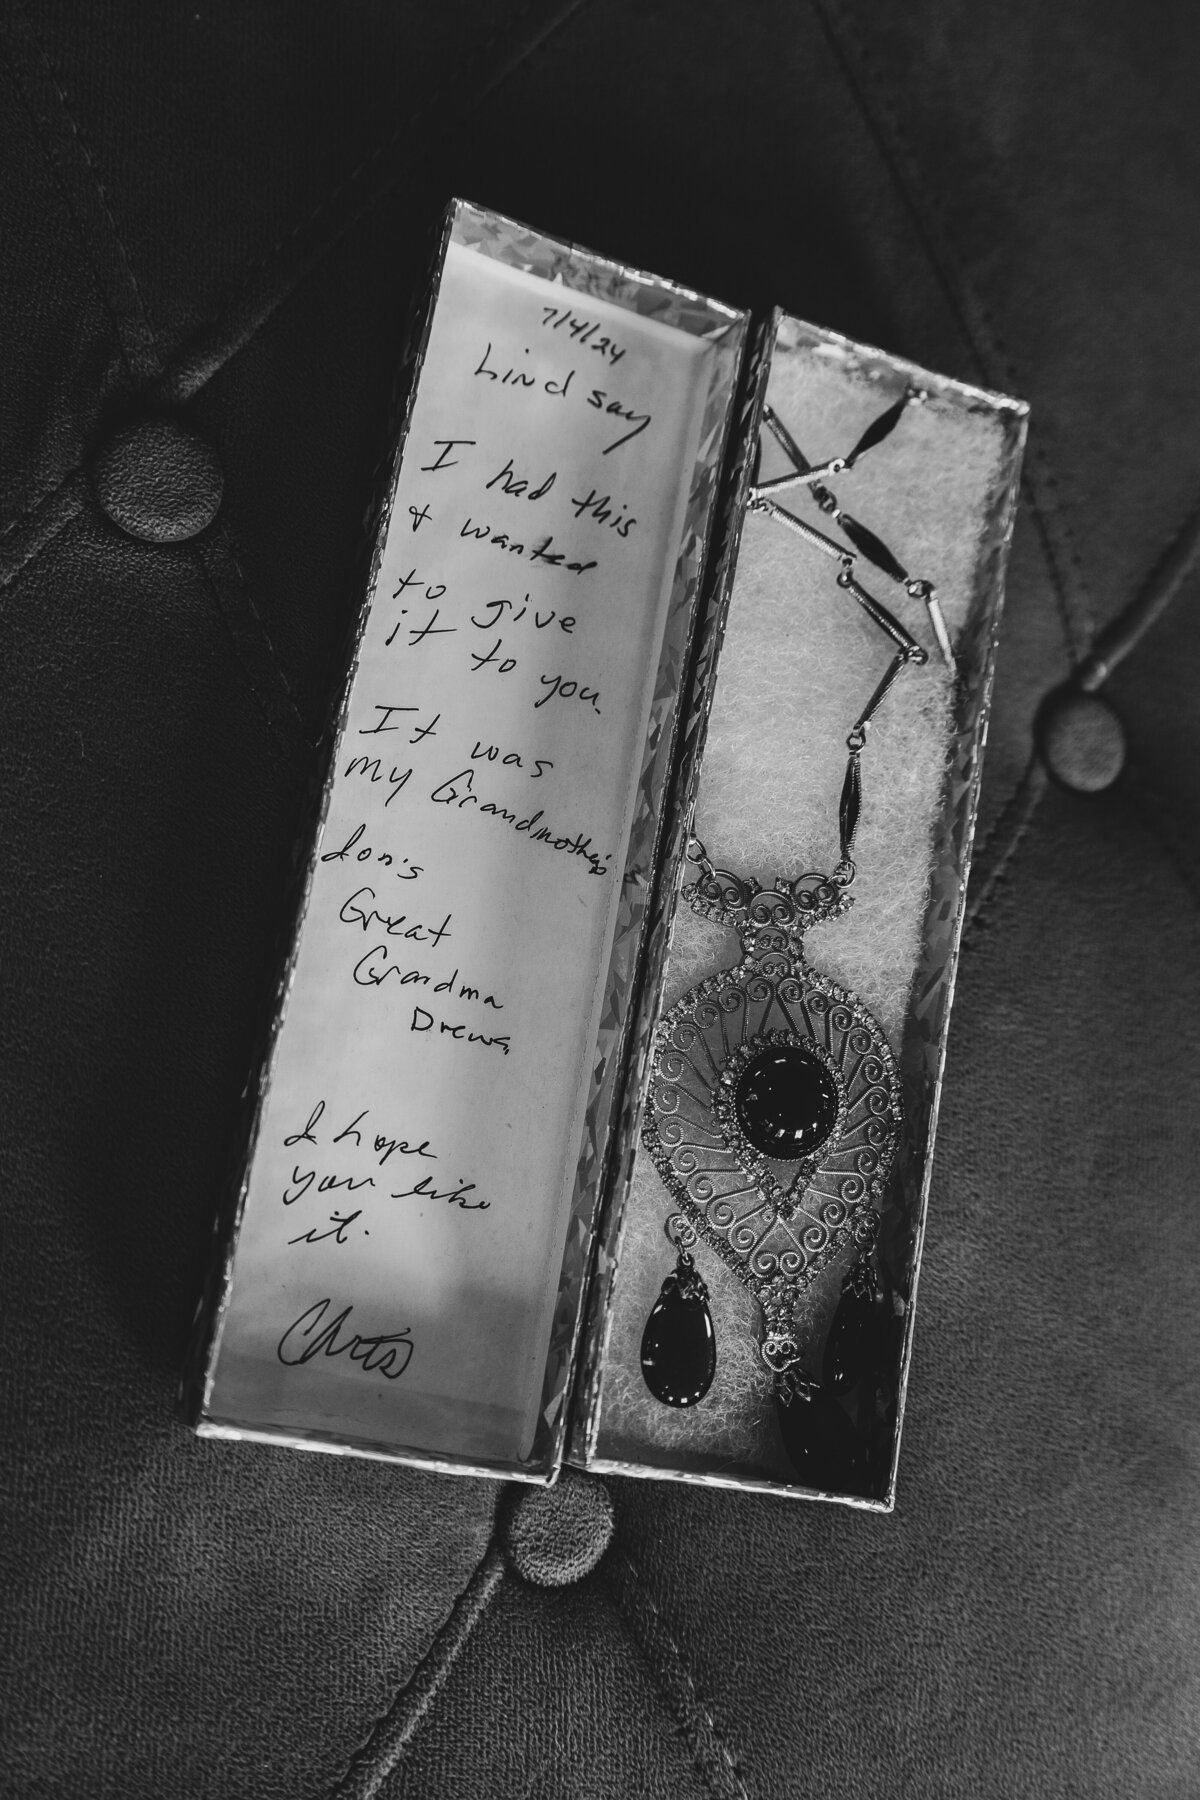 7/4/24
Lindsay
I had this
& wanted
to give
it to you.
It was
my Grandmother's
Jon's
Great
Grandma
Drews.
I hope
you like
it.
Chris